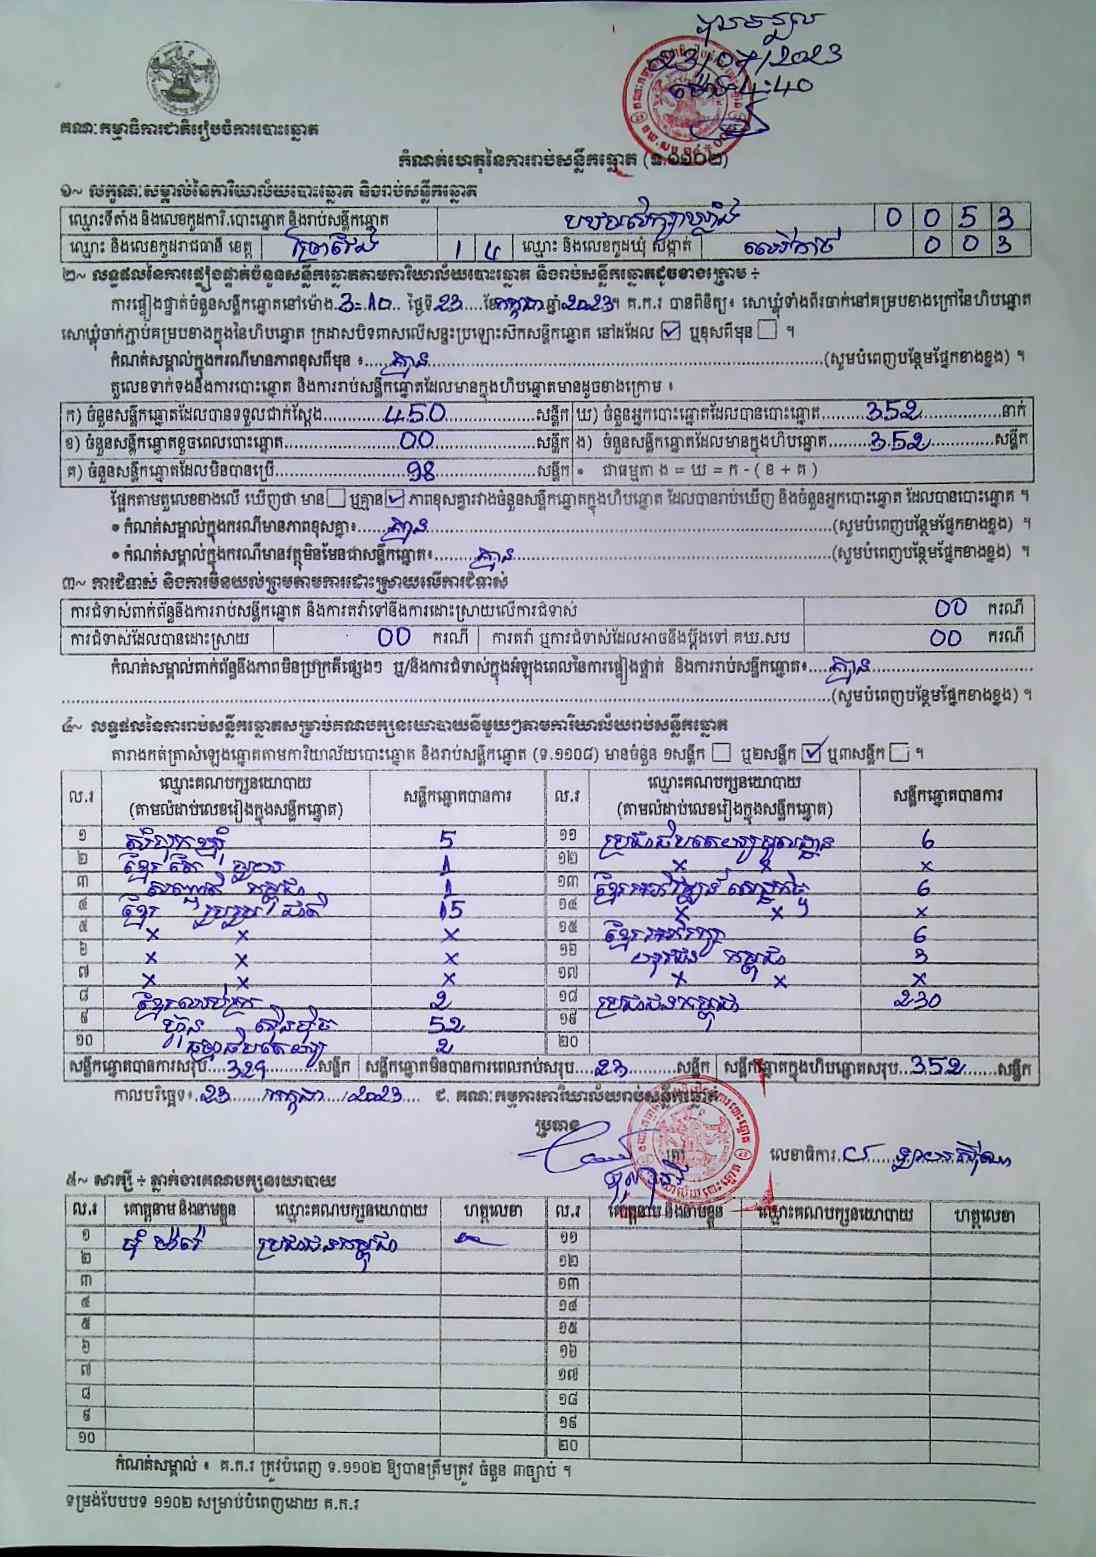 បានទទួល
23/07/2023
ម៉ោង 4:40
គណៈកម្មាធិការជាតិរៀបចំការបោះឆ្នោត
កំណត់ហេតុនៃការរាប់សន្លឹកឆ្នោត (ទ.១១០២)
១~ លក្ខណៈសម្គាល់នៃការិយាល័យបោះឆ្នោត និងរាប់សន្លឹកឆ្នោត
ឈ្មោះទីតាំង និងលេខកូដការិ.បោះឆ្នោត និងរាប់សន្លឹកឆ្នោត 0 0 5 3
ឈ្មោះ និងលេខកូដរាជធានី ខេត្ត ព្រៃវែង 1 4 ឈ្មោះ និងលេខកូដឃុំ សង្កាត់ 0 0 3
២~ លទ្ធផលនៃការផ្ទៀងផ្ទាត់ចំនួនសន្លឹកឆ្នោតតាមការិយាល័យបោះឆ្នោត និងរាប់សន្លឹកឆ្នោតដូចខាងក្រោម ÷
ការផ្ទៀងផ្ទាត់ចំនួនសន្លឹកឆ្នោតនៅម៉ោង 3:10 ថ្ងៃទី 23 ខែ កក្កដា ឆ្នាំ 2023។ គ.ក.រ បានពិនិត្យ៖ សោឃ្លុំទាំងពីរចាក់នៅគម្របខាងក្រៅនៃហិបឆ្នោត
សោឃ្លុំចាក់ភ្ជាប់គម្របខាងក្នុងនៃហិបឆ្នោត ក្រដាសបិទពាសលើសន្ទះប្រឡោះស៊កសន្លឹកឆ្នោត នៅដដែល ☑ ឬខុសពីមុន ☐ ។
កំណត់សម្គាល់ក្នុងករណីមានភាពខុសពីមុន ៖ គ្មាន (សូមបំពេញបន្ថែមផ្នែកខាងខ្នង) ។
តួលេខទាក់ទងនឹងការបោះឆ្នោត និងការរាប់សន្លឹកឆ្នោតដែលមានក្នុងហិបឆ្នោតមានដូចខាងក្រោម ៖
ក) ចំនួនសន្លឹកឆ្នោតដែលបានទទួលជាក់ស្តែង 450 សន្លឹក ឃ) ចំនួនអ្នកបោះឆ្នោតដែលបានបោះឆ្នោត 352 នាក់
ខ) ចំនួនសន្លឹកឆ្នោតខូចពេលបោះឆ្នោត 00 សន្លឹក ង) ចំនួនសន្លឹកឆ្នោតដែលមានក្នុងហិបឆ្នោត 352 សន្លឹក
គ) ចំនួនសន្លឹកឆ្នោតដែលមិនបានប្រើ 98 សន្លឹក • ជាធម្មតា ង = ឃ = ក - ( ខ + គ )
ផ្អែកតាមតួលេខខាងលើ ឃើញថា មាន ☐ ឬគ្មាន ☑ ភាពខុសគ្នារវាងចំនួនសន្លឹកឆ្នោតក្នុងហិបឆ្នោត ដែលបានរាប់ឃើញ និងចំនួនអ្នកបោះឆ្នោត ដែលបានបោះឆ្នោត ។
• កំណត់សម្គាល់ក្នុងករណីមានភាពខុសគ្នា៖ គ្មាន (សូមបំពេញបន្ថែមផ្នែកខាងខ្នង) ។
• កំណត់សម្គាល់ក្នុងករណីមានវត្ថុមិនមែនជាសន្លឹកឆ្នោត៖ គ្មាន (សូមបំពេញបន្ថែមផ្នែកខាងខ្នង) ។
៣~ ការជំទាស់ និងការមិនយល់ព្រមតាមការដោះស្រាយលើការជំទាស់
ការជំទាស់ពាក់ព័ន្ធនឹងការរាប់សន្លឹកឆ្នោត និងការតវ៉ាទៅនឹងការដោះស្រាយលើការជំទាស់ 00 ករណី
ការជំទាស់ដែលបានដោះស្រាយ 00 ករណី ការតវ៉ា ឬការជំទាស់ដែលអាចនឹងប្តឹងទៅ គឃ.សប 00 ករណី
កំណត់សម្គាល់ពាក់ព័ន្ធនឹងភាពមិនប្រក្រតីផ្សេងៗ ឬ/និងការជំទាស់ក្នុងអំឡុងពេលនៃការផ្ទៀងផ្ទាត់ និងការរាប់សន្លឹកឆ្នោត៖ គ្មាន
(សូមបំពេញបន្ថែមផ្នែកខាងខ្នង) ។
៤~ លទ្ធផលនៃការរាប់សន្លឹកឆ្នោតសម្រាប់គណបក្សនយោបាយនីមួយៗតាមការិយាល័យរាប់សន្លឹកឆ្នោត
តារាងកត់ត្រាសំឡេងឆ្នោតតាមការិយាល័យបោះឆ្នោត និងរាប់សន្លឹកឆ្នោត (ទ.១១០៨) មានចំនួន ១សន្លឹក ☐ ឬ២សន្លឹក ☑ ឬ៣សន្លឹក ☐ ។
ល.រ ឈ្មោះគណបក្សនយោបាយ (តាមលំដាប់លេខរៀងក្នុងសន្លឹកឆ្នោត) សន្លឹកឆ្នោតបានការ ល.រ ឈ្មោះគណបក្សនយោបាយ (តាមលំដាប់លេខរៀងក្នុងសន្លឹកឆ្នោត) សន្លឹកឆ្នោតបានការ
១ 5 ១១ 6
២ ខ្មែរតែមួយ 1 ១២ x x x
៣ សញ្ជាតិកម្ពុជា 1 ១៣ ខ្មែរអភិវឌ្ឍន៍សេដ្ឋកិច្ច 6
៤ ខ្មែររួបរួមជាតិ 15 ១៤ x x x
៥ x x x ១៥ ខ្មែរអភិរក្ស 6
៦ x x x ១៦ យុវជនកម្ពុជា 3
៧ x x x ១៧ x x x
៨ ខ្មែរឈប់ក្រ 2 ១៨ ប្រជាជនកម្ពុជា 230
៩ ហ៊្វុនស៊ិនប៉ិច 52 ១៩
១០ 2 ២០
សន្លឹកឆ្នោតបានការសរុប 329 សន្លឹក សន្លឹកឆ្នោតមិនបានការពេលរាប់សរុប 23 សន្លឹក សន្លឹកឆ្នោតក្នុងហិបឆ្នោតសរុប 352 សន្លឹក
កាលបរិច្ឆេទ៖ 23 កក្កដា 2023 ជ. គណៈកម្មការការិយាល័យរាប់សន្លឹកឆ្នោត
ប្រធាន
លេខាធិការ
៥~ សាក្សី ÷ ភ្នាក់ងារគណបក្សនយោបាយ
ល.រ គោត្តនាម និងនាមខ្លួន ឈ្មោះគណបក្សនយោបាយ ហត្ថលេខា ល.រ គោត្តនាម និងនាមខ្លួន ឈ្មោះគណបក្សនយោបាយ ហត្ថលេខា
១ ប្រជាជនកម្ពុជា ១១
២ ១២
៣ ១៣
៤ ១៤
៥ ១៥
៦ ១៦
៧ ១៧
៨ ១៨
៩ ១៩
១០ ២០
កំណត់សម្គាល់ ៖ គ.ក.រ ត្រូវបំពេញ ទ.១១០២ ឱ្យបានត្រឹមត្រូវ ចំនួន ៣ច្បាប់ ។
ទម្រង់បែបបទ ១១០២ សម្រាប់បំពេញដោយ គ.ក.រ